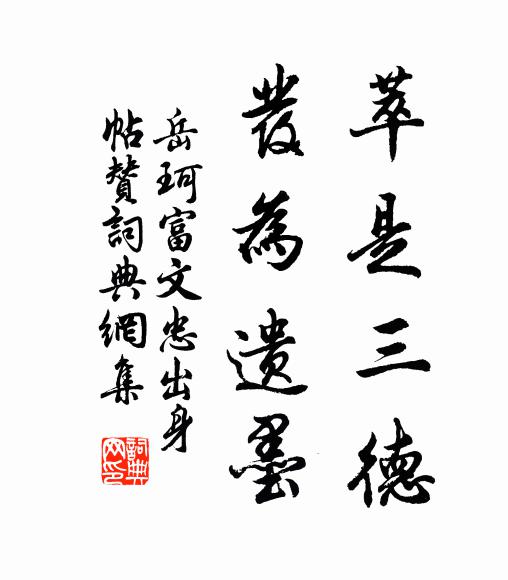 萃是三德
發為遺墨
岳珂富文忠出身
帖贊詞典網集
詞典網印